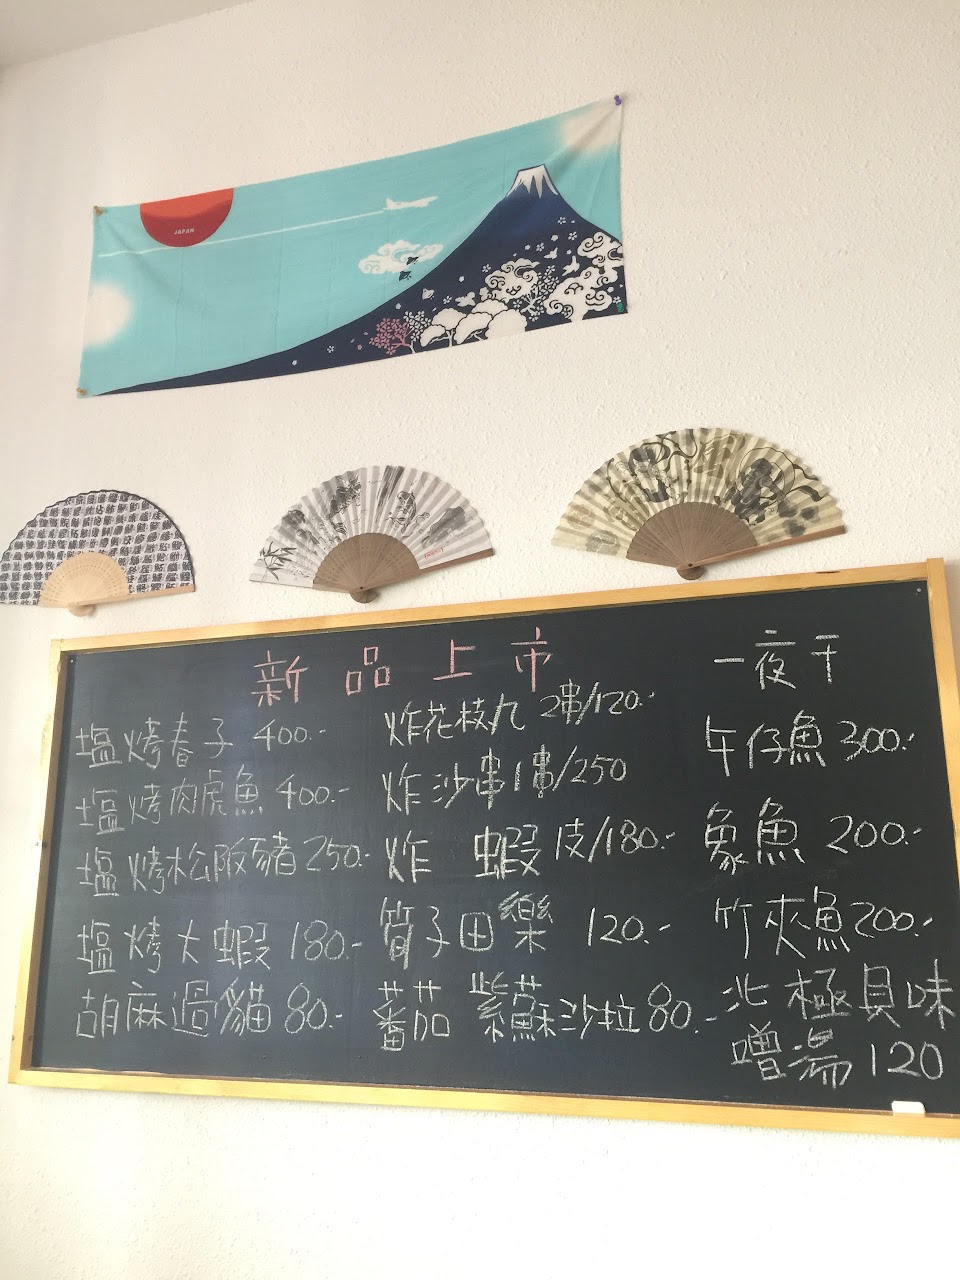 JAPAN
新品上市
塩烤春子 400.-
塩烤肉虎魚 400.-
塩烤松阪豬 250.-
塩烤大蝦 180.-
胡麻過貓 80.-
炸花枝丸 2串/120.-
炸沙串 1串/250
炸 蝦 1支/180.-
筍子田樂 120.-
蕃茄 紫蘇沙拉 80.-
一夜干
午仔魚 300.-
象魚 200.-
竹夾魚 200.-
北極貝味
噌湯 120